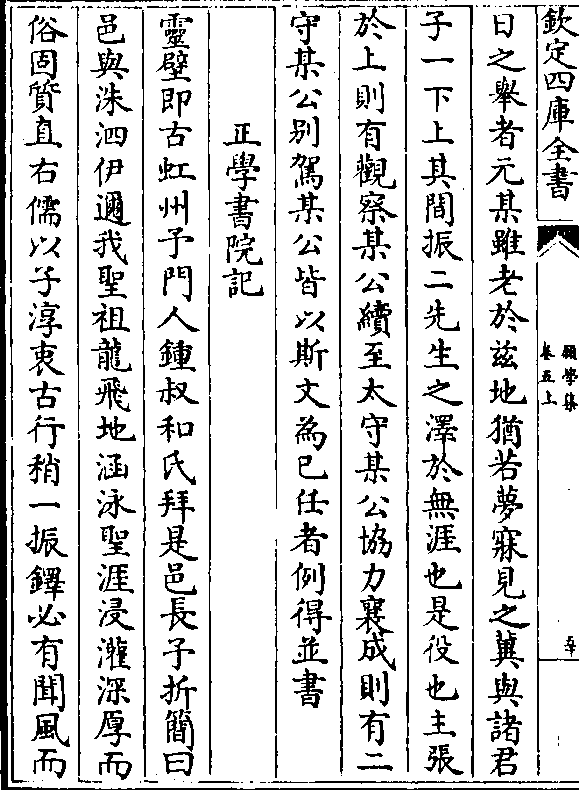 欽定四庫全書
願學集
卷五上
至
日之舉者元某雖老於兹地猶若夢寐見之冀與諸君
子一下上其間振二先生之澤於無涯也是役也主張
於上則有觀察某公續至太守某公協力襄成則有二
守某公别駕某公皆以斯文為已任者例得並書
正學書院記
靈壁即古虹州予門人鍾叔和氏拜是邑長予折簡曰
邑與洙泗伊邇我聖祖龍飛地涵泳聖涯浸灌深厚而
俗固質直右儒以子淳衷古行稍一振鐸必有聞風而